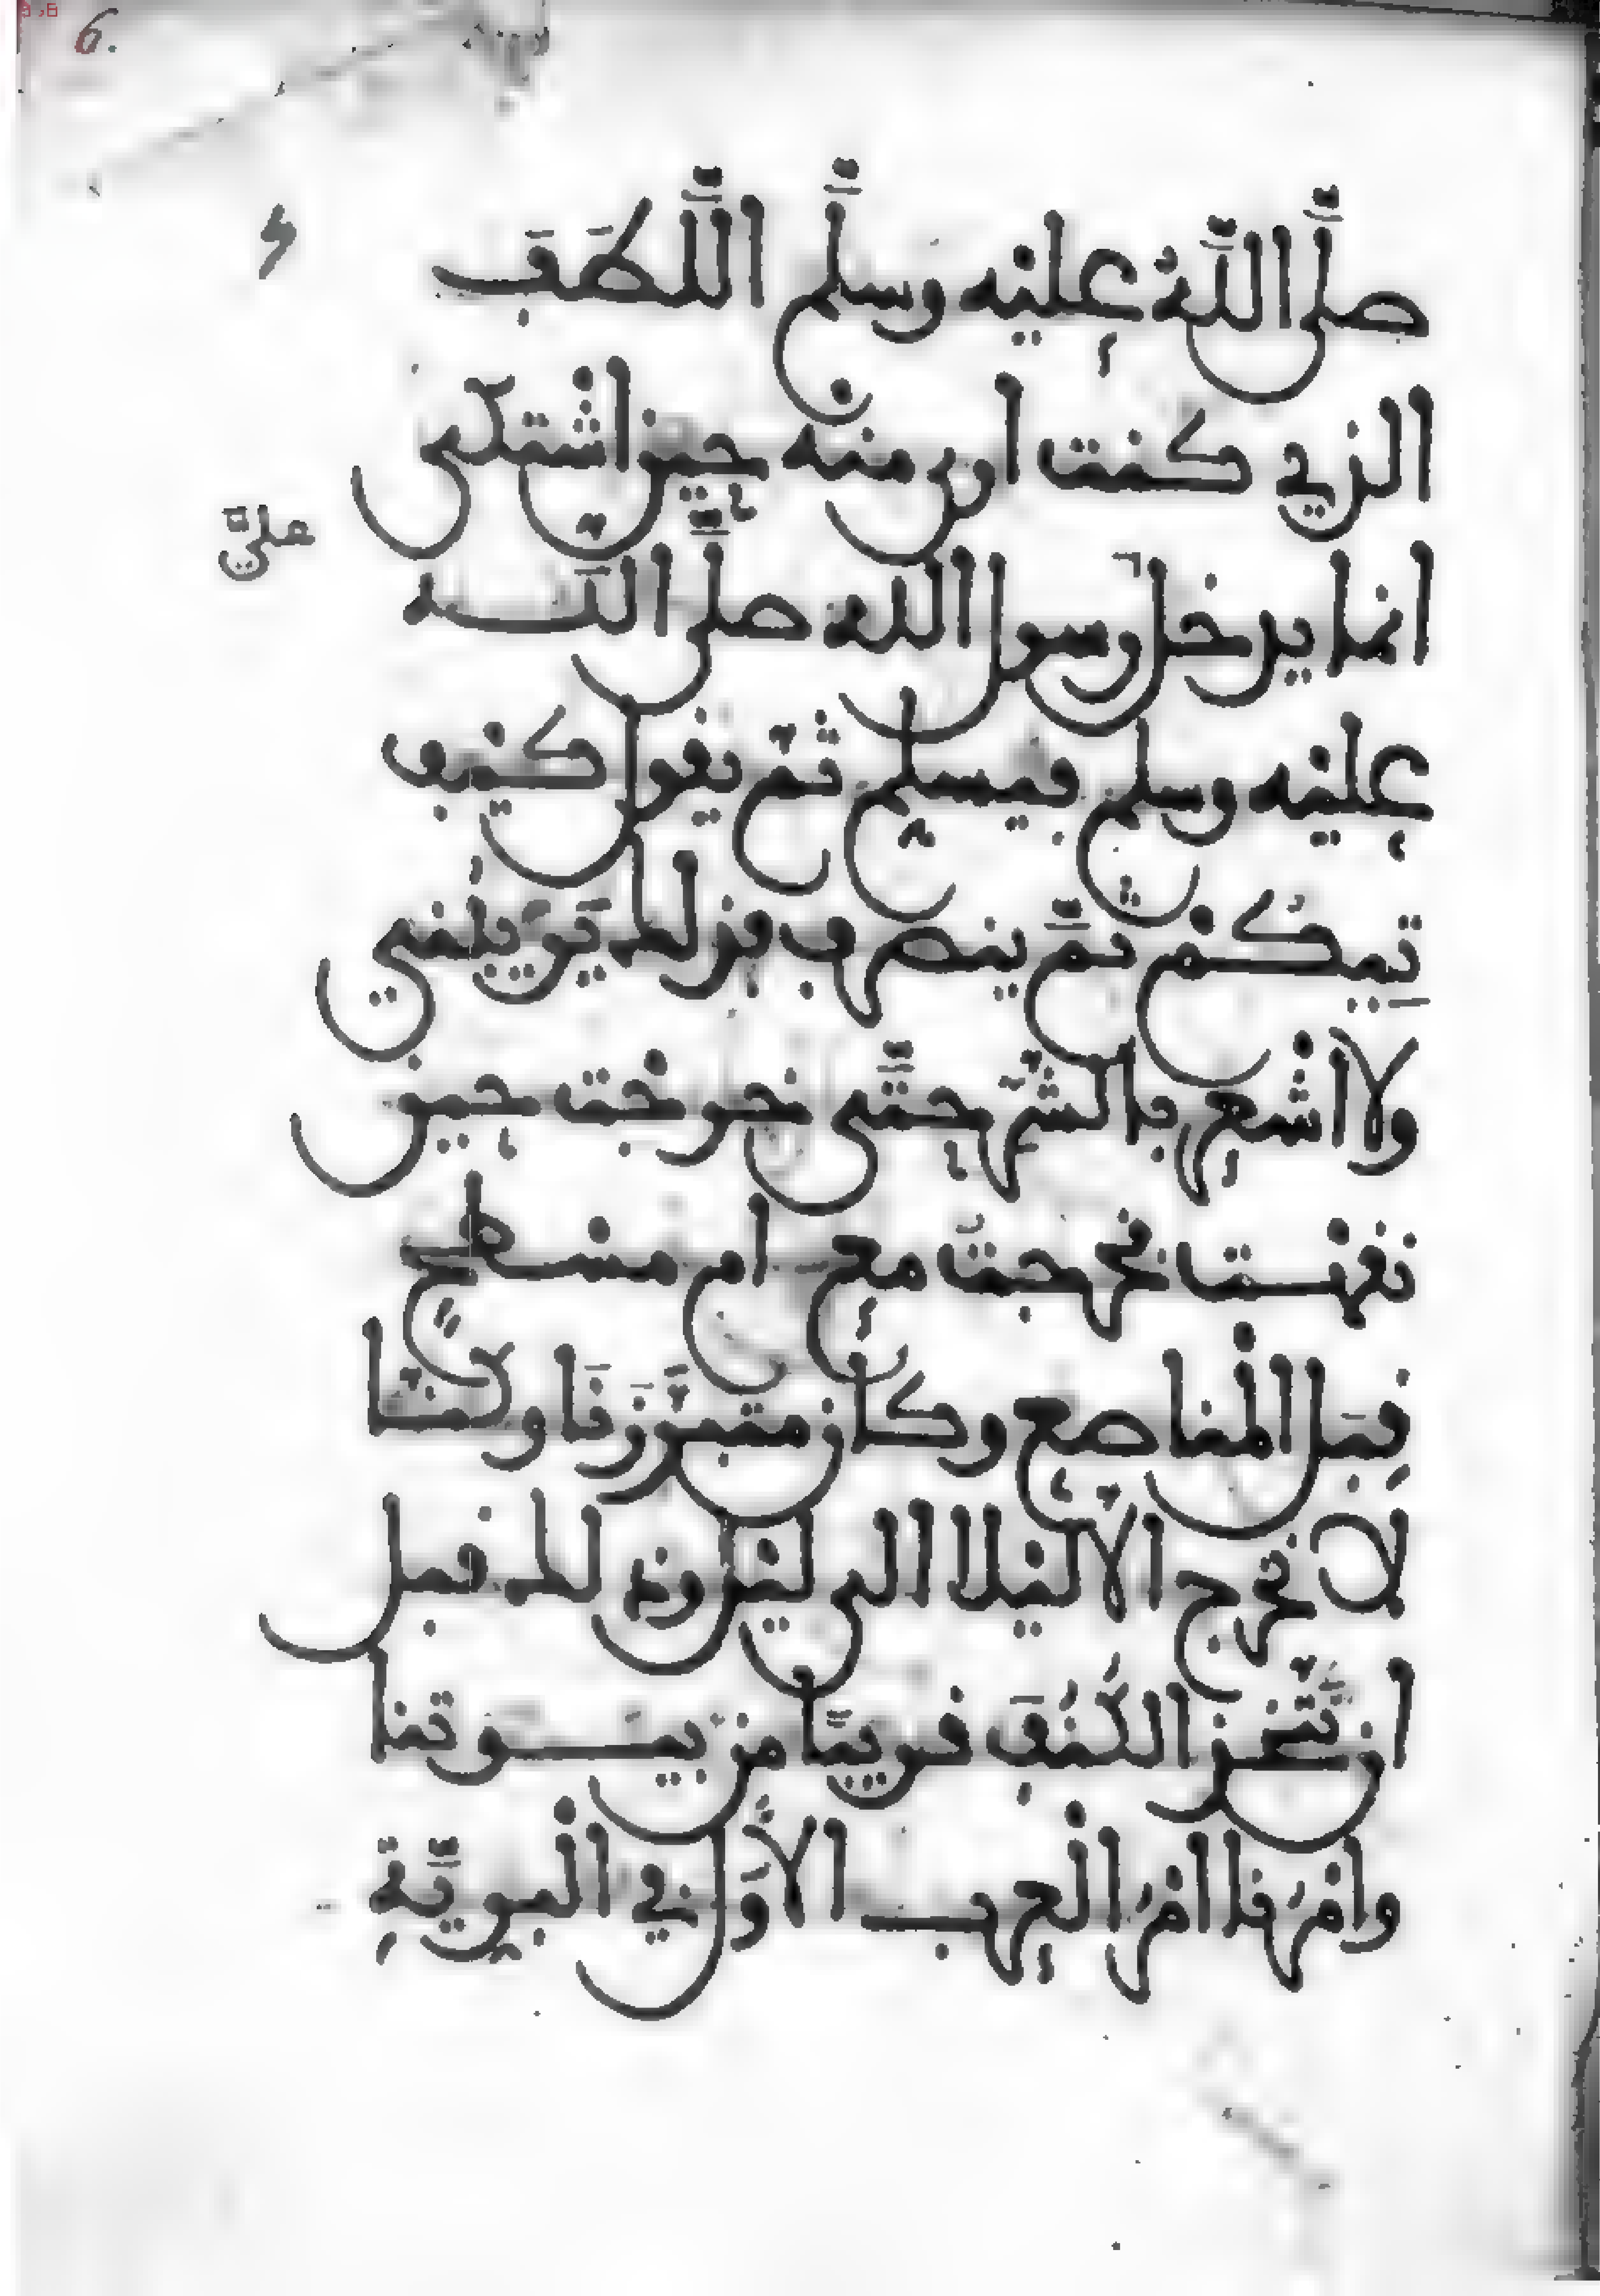 6.
صلَّى اللَّهُ عليْه وسلَّم اللَّطَفَ
الذي كنت ارى منه حين اشتكى
انما يدخل رسول الله صلَّى اللَّه
عليْه وسلم فيسلم ثمّ يقول كيْف
تِيكُمْ ثمَّ ينصرف فذلك يَرِيبُني
ولا اشْعر بالشّرِّ حتَّى خرجْت حين
نقهْت فخرجتُ مع ام مسْطحٍ
قِبَل الْمناصع وكان متبرَّزَنَا وكنّا
لا نخرج الا ليْلا الى ليْل وذلك قبل
ان نتّخذ الكُنُفَ قريبًا من بيُوتنا
وامْرُنا امْرُ الْعرب الأُوَل في الْبريَّةِ
عليّ